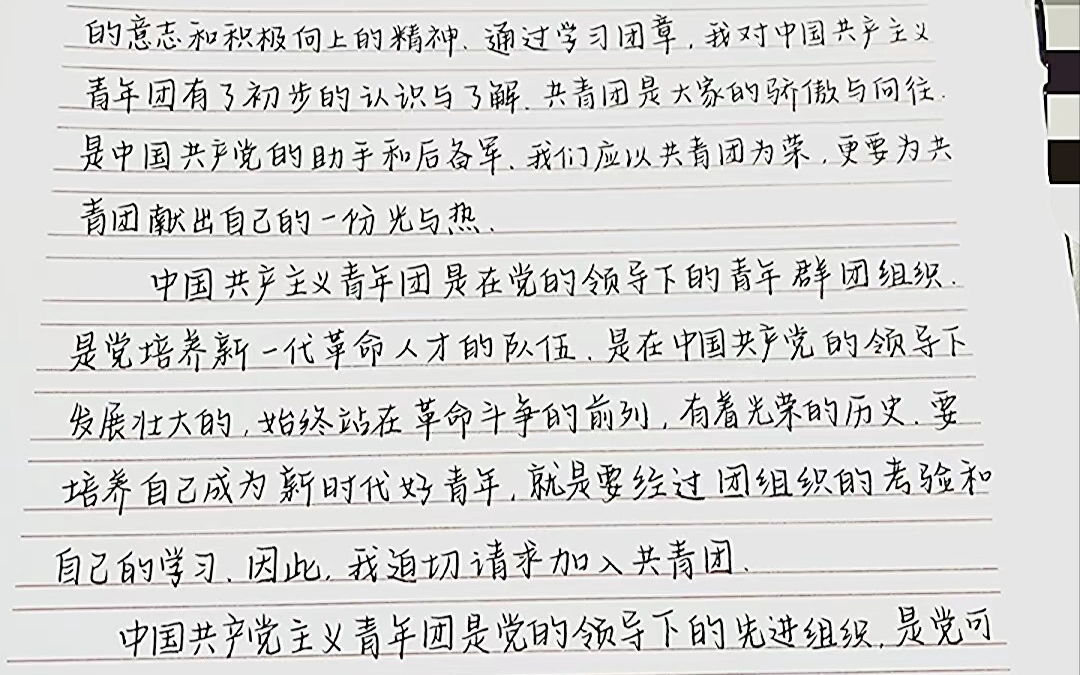 的意志和积极向上的精神. 通过学习团章, 我对中国共产主义
青年团有了初步的认识与了解. 共青团是大家的骄傲与向往.
是中国共产党的助手和后备军. 我们应以共青团为荣, 更要为共
青团献出自己的一份光与热.
中国共产主义青年团是在党的领导下的青年群团组织.
是党培养新一代革命人才的队伍. 是在中国共产党的领导下
发展壮大的, 始终站在革命斗争的前列, 有着光荣的历史. 要
培养自己成为新时代好青年, 就是要经过团组织的考验和
自己的学习. 因此, 我迫切请求加入共青团.
中国共产党主义青年团是党的领导下的先进组织, 是党可